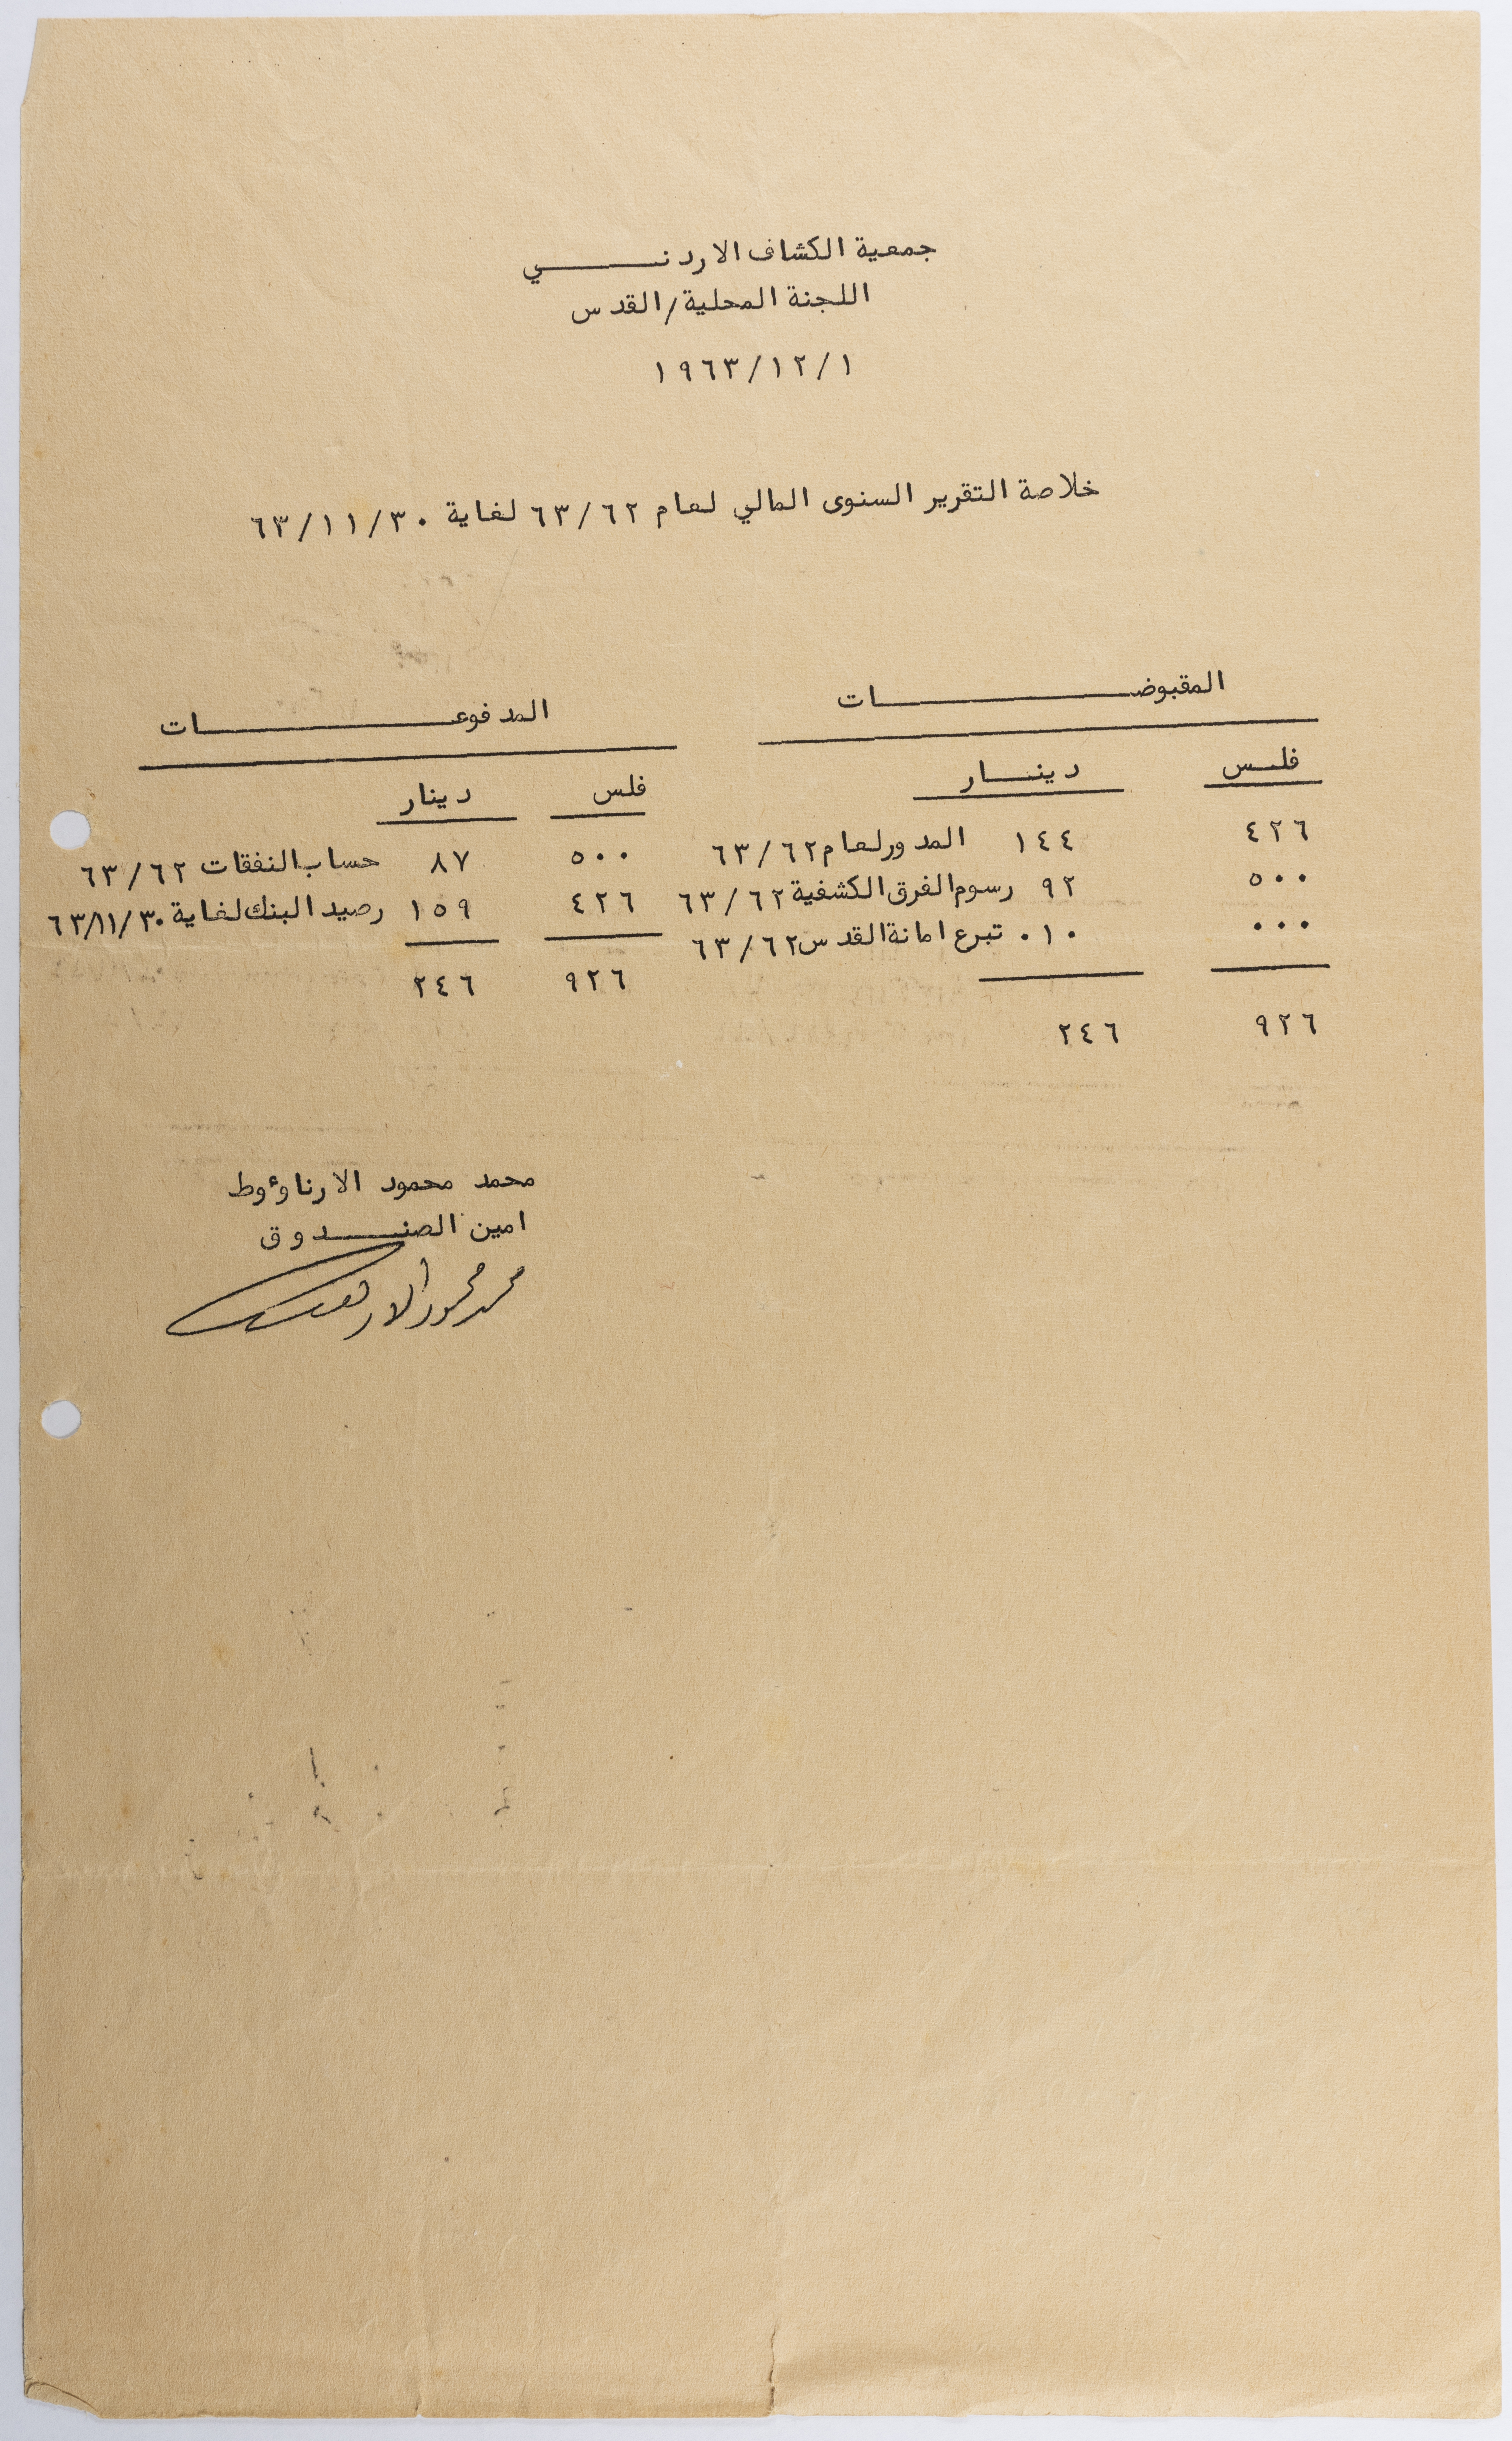 جمعية الكشاف الاردنـــــي
اللجنة المحلية/القدس
١٩٦٣/١٢/١
خلاصة التقرير السنوى المالي لعام ٦٣/٦٢ لغاية ٦٣/١١/٣٠
المقبوضـــــــــــات
فلس دينــار
٤٢٦ ١٤٤ المدور لعام ٦٣/٦٢
٥٠٠ ٩٢ رسوم الفرق الكشفية ٦٣/٦٢
٠٠٠ ٠١٠ تبرع امانة القدس ٦٣/٦٢
٩٢٦ ٢٤٦
المدفوعـــــــــــات
فلس دينار
٥٠٠ ٨٧ حساب النفقات ٦٣/٦٢
٤٢٦ ١٥٩ رصيد البنك لغاية ٦٣/١١/٣٠
٩٢٦ ٢٤٦
محمد محمود الارناوٴوط
امين الصنــدوق
محمد محمود الارناؤوط